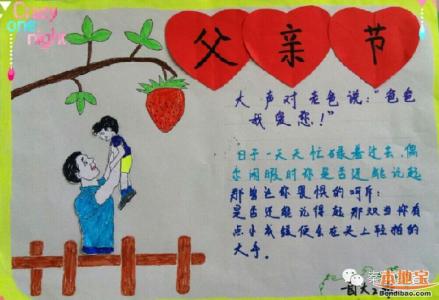 Crazy
one
night
父亲节
大声对老爸说:"爸爸
我爱您!"
日子一天天忙碌着过去,偶
尔闲暇时你是否还能记起
那曾让你畏惧的呵斥;
是否还能记得起那双当你有
点小成绩便会在头上轻拍的
大手。
本地宝
Bendibao.com